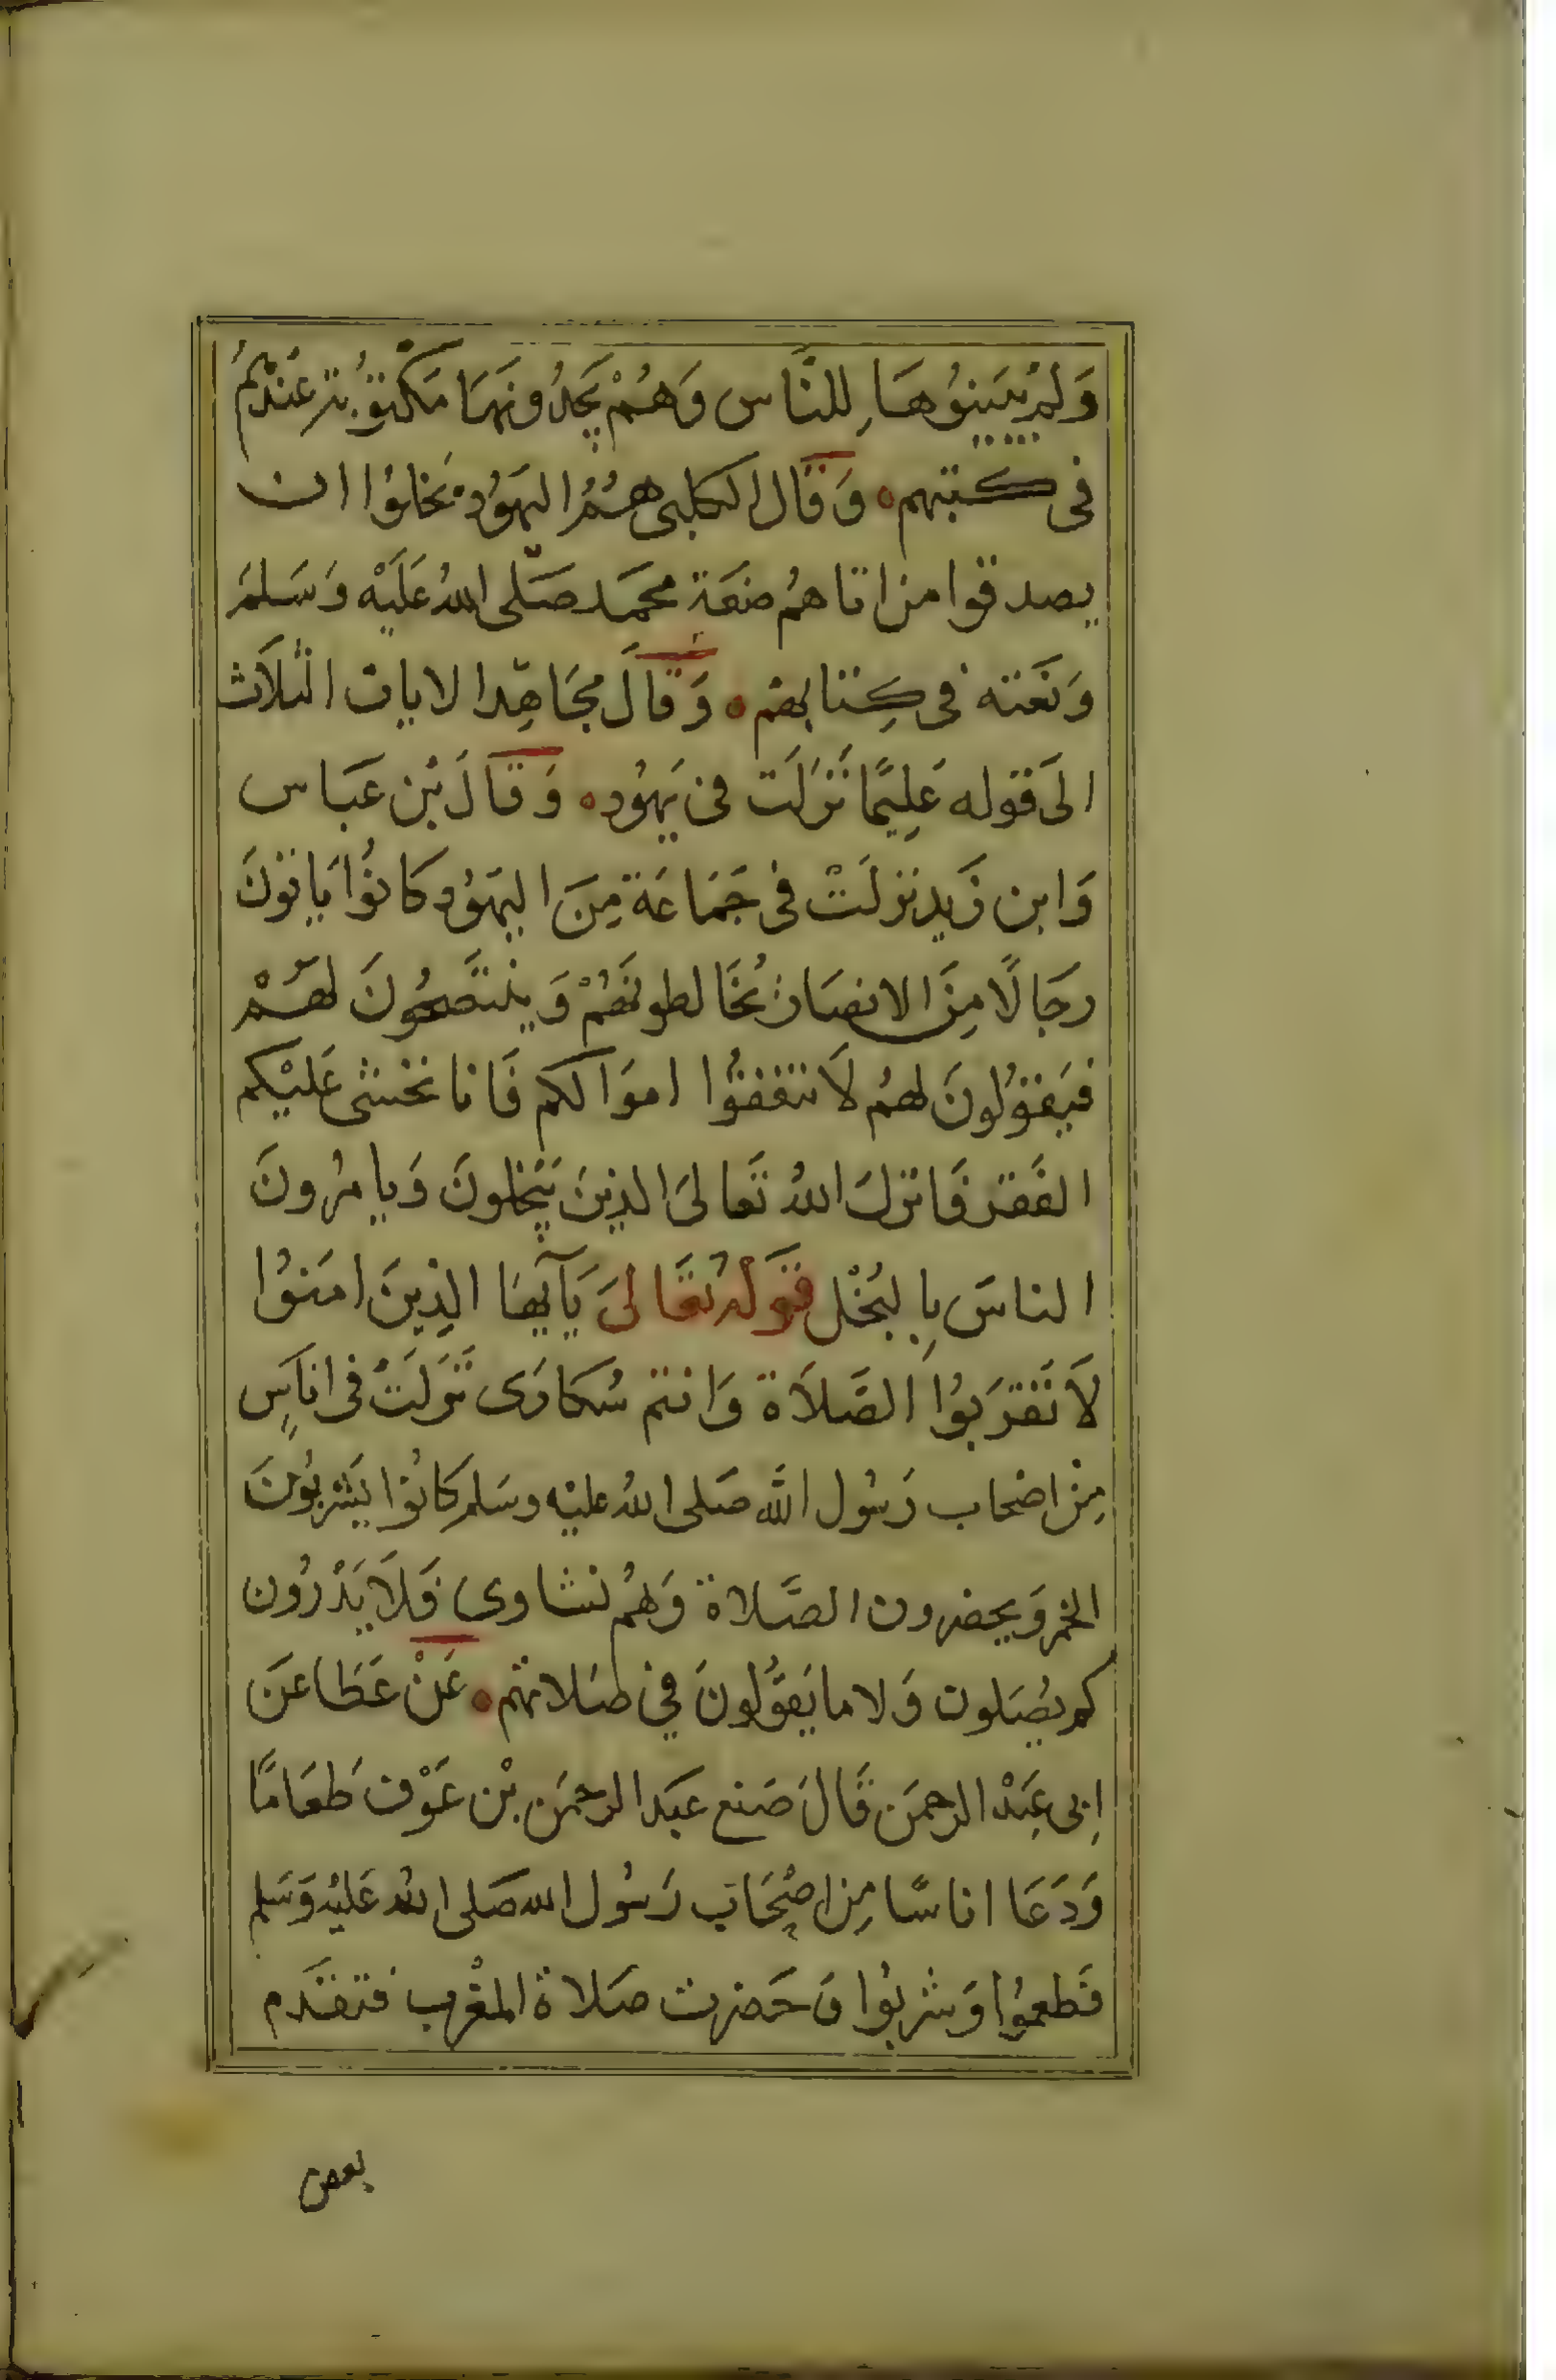 وَلَمْ يُبَيِّنُوهَا لِلنَّاس وَهُمْ يَجِدُونَهَا مَكْتوُبة عَنْدهُمُ
فى كتبهم ه وَقَال الكلبى هُمُ اليَهوُد بَخلوُا ان
يصدقوا من اتاهمُ صفَة محمَد صَلى اللهُ عَلَيْه وَسَلمَ
وَنَعَته فى كِتابهم ه وَقَالَ مجَاهِدا الايات الثلَاث
الىَ قوله عَلِيمًا نَزلَت فى يَهوُد ه وَقَالَ بْن عَبَاس
وَابن زَيد نزلَتْ فى جَمَاعَة مِنَ اليهَوُد كَانوُا يَاتوُنَ
رجَالًا مِنَ الانصَار يُخَالطونَهُمْ وَينتَصحُونَ لهَمْ
فيَقوُلونَ لهمُ لَا تنفقوُا اموَالكم فَانا نخشى عَليْكم
الفَقر فَانزلَ اللهُ تَعالىَ الذينَ يَبخلونَ وَيامرُونَ
الناسَ بِالبُخْل قوَلهُ تعَالىَ يَآيهَا الذِينَ امَنوُا
لَا تَقرَبوُا الصَّلَاة وَانتم سُكارَى نَزلَتْ فى انَاسٍ
مِنْ اصْحاب رَسُول الله صَلى اللهُ عليْه وسَلم كَانوُا يَشرَبوُنَ
الخمر وَيحضرون الصَّلاة وَهمُ نشاوى فَلَا يَدْرُون
كم يصَلون وَلا ما يَقوُلونَ في صَلاتهم ه عَنْ عَطَا عَن
اِبى عَبْد الرحمَن قَالَ صَنع عبَد الرحمَن بْن عَوْف طَعَامًا
وَدَعَا اناسًا مِن اصْحَاب رَسُول الله صَلى اللهُ عَليْه وَسَلم
فَطعموُا وَشربوُا وَحَضرت صَلاة المغْرب فتقدَم
بعض